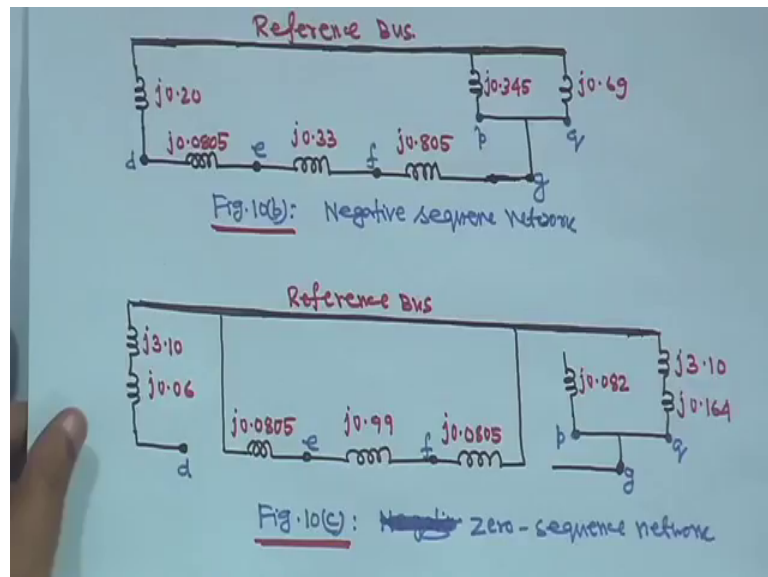 Reference Bus.
j0.20
j0.345
j0.69
j0.0805
j0.33
j0.805
d
e
f
p
q
g
Fig.10(b): Negative sequene network
Reference Bus
j3.10
j0.06
j3.10
j0.082
j0.164
j0.0805
j0.99
j0.0805
d
e
f
p
q
g
Fig.10(c): zero-sequence network